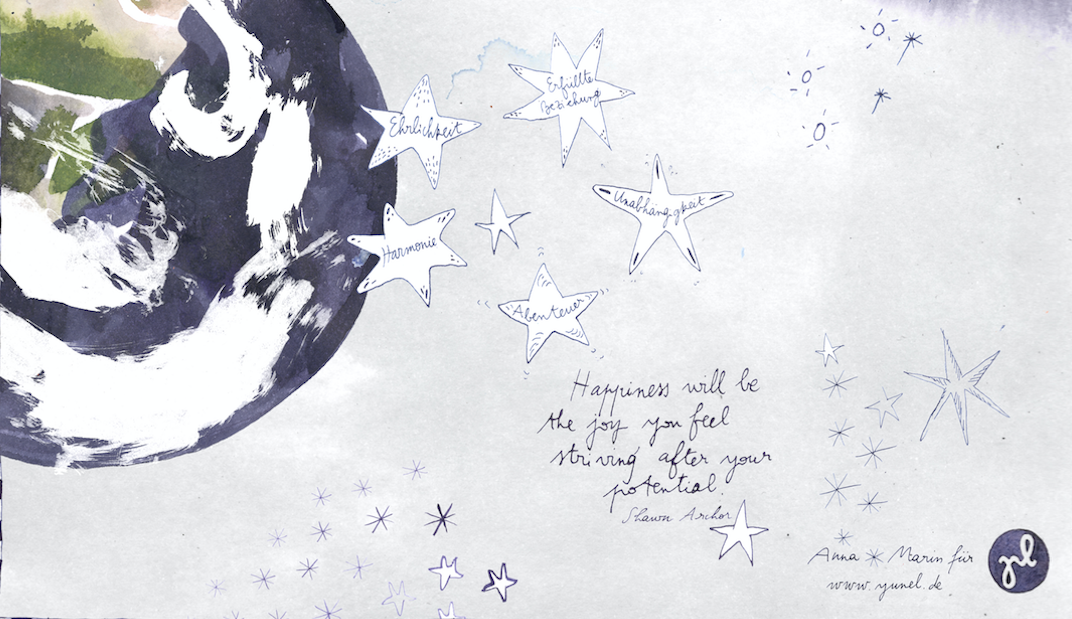 Erfüllte
Beziehung
Ehrlichkeit
Unabhängigkeit
Harmonie
Abenteuer
Happiness will be
the joy you feel
striving after your
potential.
Shawn Archor
Anna Marin für
www.yunel.de
yl